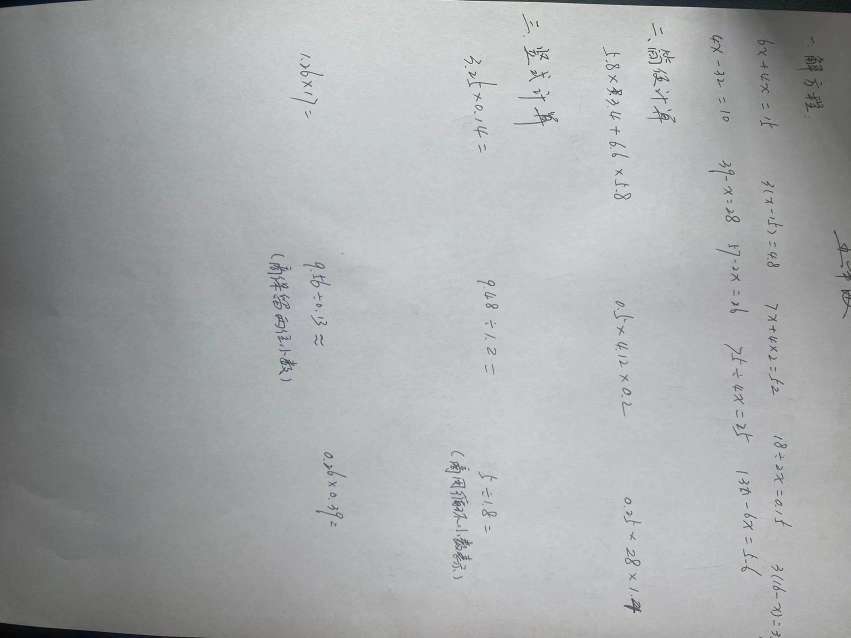 一、解方程.
6x+4x=15 3(x-15)=4.8 7x+4×2=52 18÷2x=0.15 3(16-x)=3.
4x-32=10 39-x=28 57-2x=26 75÷4x=25 13x-6x=5.6
二、简便计算
5.8×3.4+6.6×5.8 0.5×4.12×0.2 0.25×28×1.4
三、竖式计算
3.25×0.14= 9.48÷1.2= 5÷1.8=
(商用循环小数表示)
1.26×17= 9.56÷0.13≈ 0.26×0.39=
(商保留两位小数)